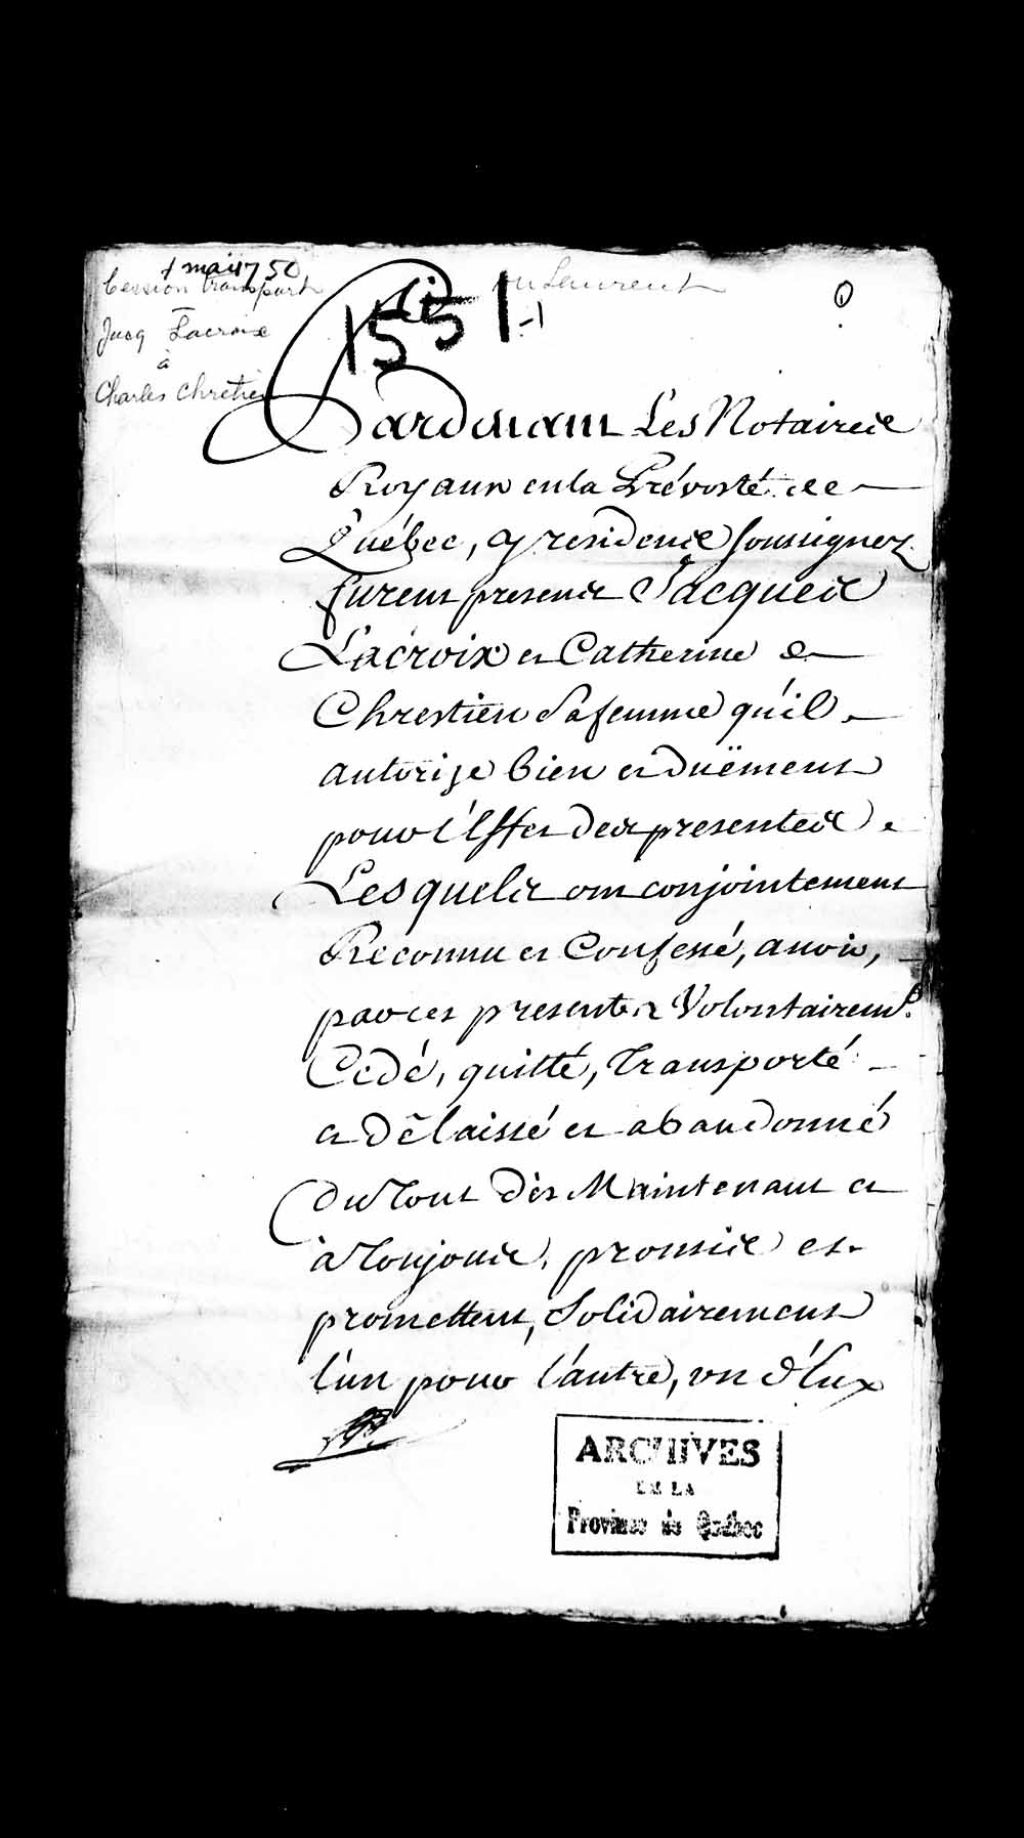 1 mai 1750
Cession transport
Jacq Lacroix
à
Charles Chretien
St Laurent
1551
Pardevant Les Notaires
Royaux en la Prévosté de
Québec, y residens soussignez
furent presens Jacques
Lacroix et Catherine
Chrestien Sa femme qu'il
autorise bien et duëment
pour l'Effet des presentes
Lesquels ont conjointement
Reconnu et Confessé, avoir,
par ces presentes Volontairemt.
Cedé, quitté, Transporté
et délaissé et abandonné
du Tout dès Maintenant et
à Toujours, promis et
promettent, Solidairement
l'un pour l'autre, un d'Eux
ARCHIVES
DE LA
Province de Québec